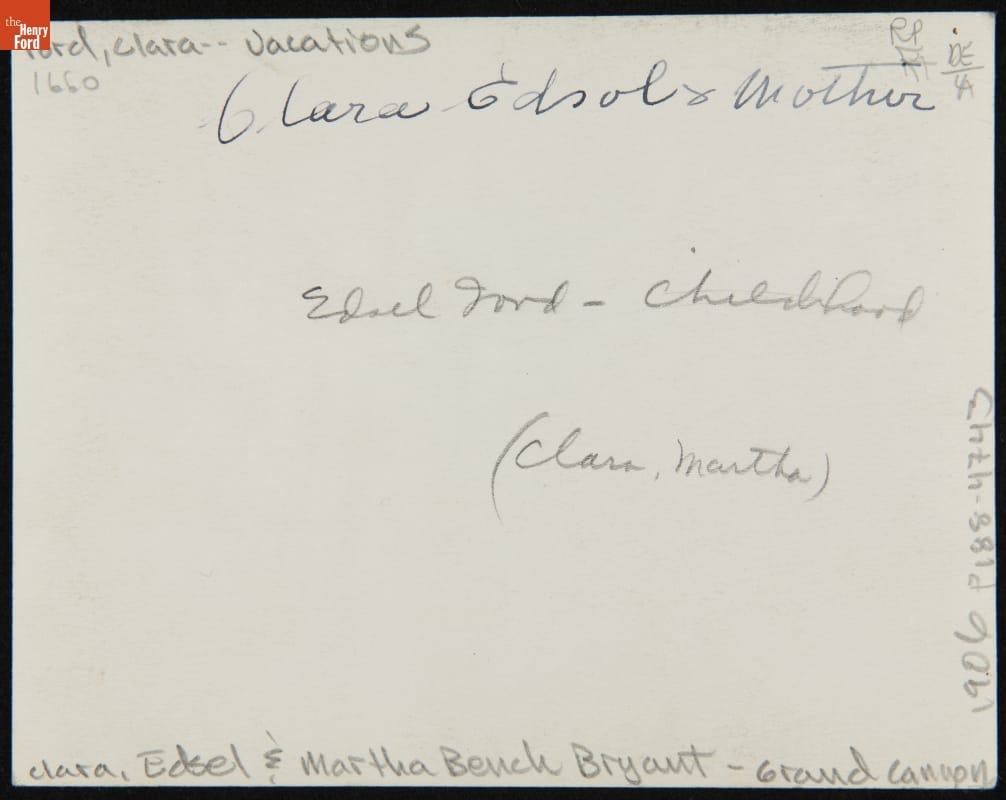 the
Henry
Ford
Ford, Clara -- Vacations
1660
RP
DE
A
Clara Edsol & Mother
Edsel Ford - Childhood
(Clara, Martha)
1906 P.188-47243
Clara, Edsel & Martha Bench Bryant - Grand Canyon